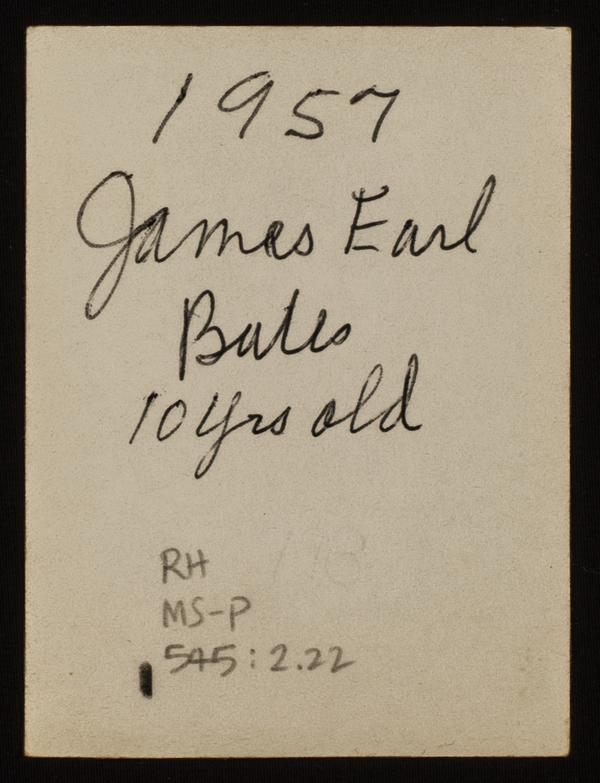 1957
James Earl
Bates
10 yrs old
RH
MS-P
545:2.22